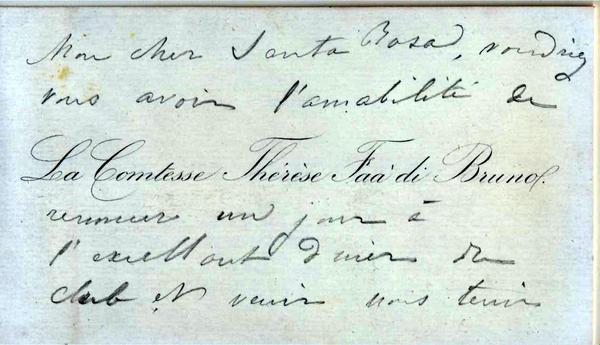 Mon cher Santa Rosa, voudriez
vous avoir l'amabilité de
La Comtesse Thérèse Faà di Bruno.
renoncer un jour à
l'excellent diner du
club et venir nous tenir